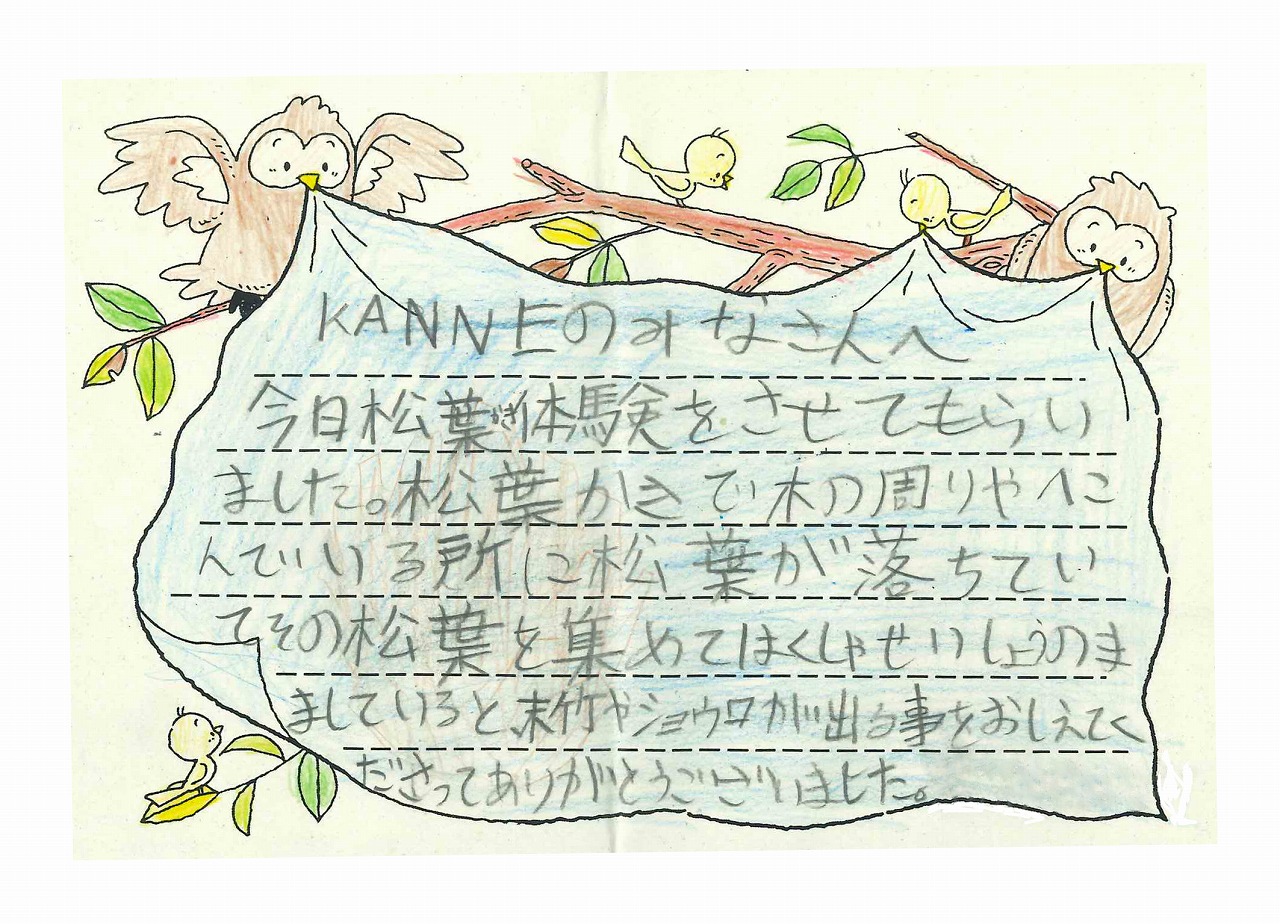 KANNEのみなさんへ
今日松葉かき体験をさせてもらい
ました。松葉かきで木の周りやへこ
んでいる所に松葉が落ちてい
てその松葉を集めてはくしゃせいしょうのま
ましていると、末竹やショウロが出る事をおしえてく
ださってありがとうございました。